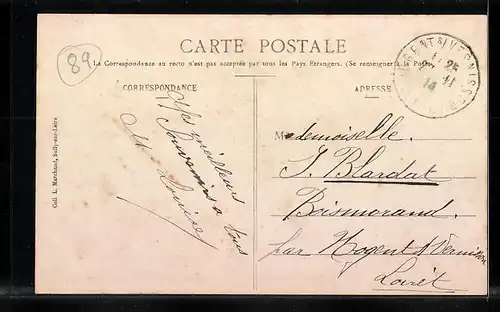 89
CARTE POSTALE
La Correspondance au recto n'est pas acceptée par tous les Pays Etrangers. (Se renseigner à la Poste)
CORRESPONDANCE
ADRESSE
Coll. L. Marchand, Sully-sur-Loire
Mes meilleurs
Souvenirs à tous
Mademoiselle.
J. Blardat
Boismorand.
par Nogent s/ Vernisson
Loiret